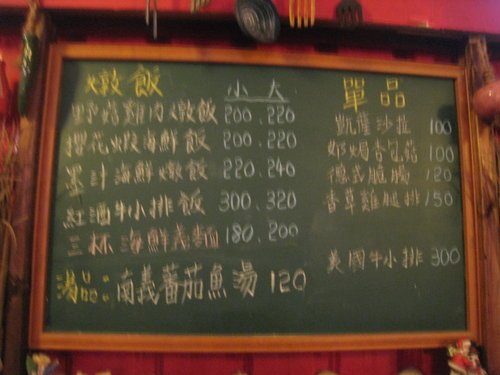 燉飯 小 大
野菇雞肉燉飯 200、220
櫻花蝦海鮮飯 200、220
墨汁海鮮燉飯 220、240
紅酒牛小排飯 300、320
三杯海鮮義麵 180、200
湯：南義蕃茄魚湯 120
單品
凱薩沙拉 100
奶焗杏包菇 100
德式臘腸 120
香草雞腿排 150
美國牛小排 300